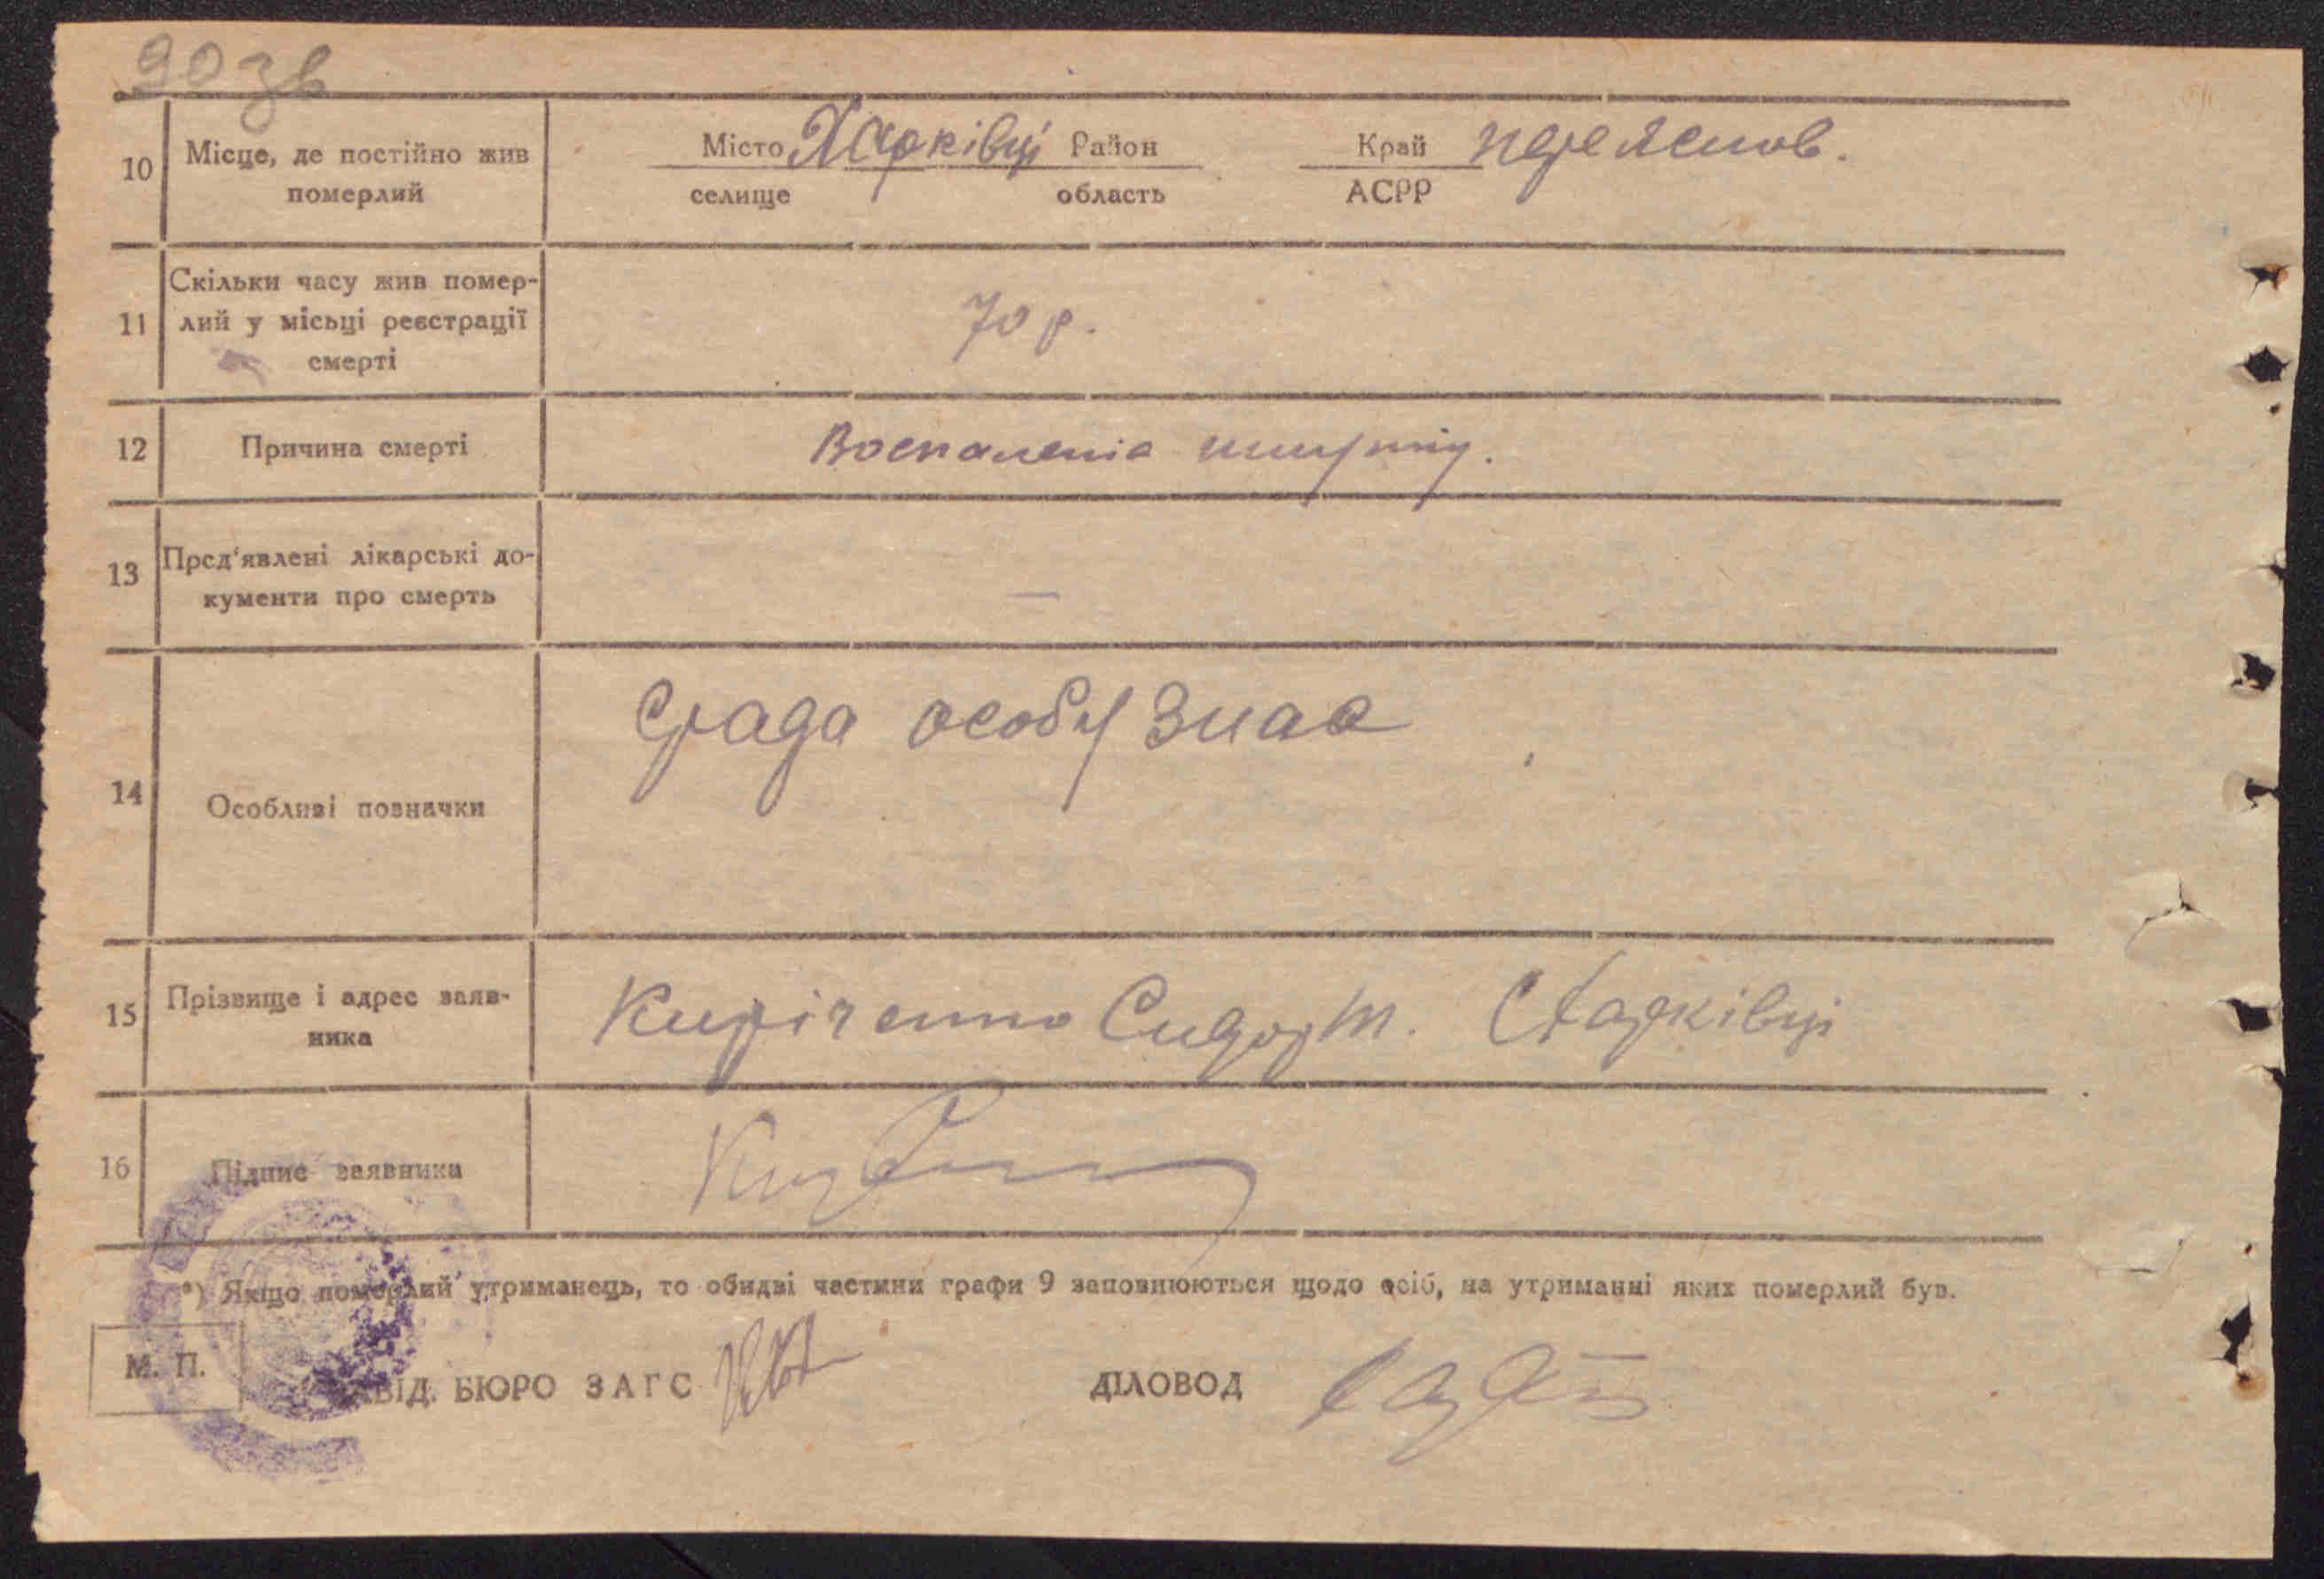 90 зв
10 Місце, де постійно жив померлий
Місто Харківці Район Край переяслов.
селище область АСРР
11 Скільки часу жив помер-
лий у місьці реєстрації
смерті
70 р.
12 Причина смерті
Воспаленія
13 Пред'явлені лікарські до-
кументи про смерть
—
14 Особливі позначки
с/рада особу знає
15 Прізвище і адрес заяв-
ника
Киріченко Сидор М. С Харківці
16 Підпис заявника
*) Якщо померлий утриманець, то обидві частини графи 9 заповнюються щодо осіб, на утриманні яких померлий був.
М. П.
ЗАВІД. БЮРО ЗАГС ДІЛОВОД